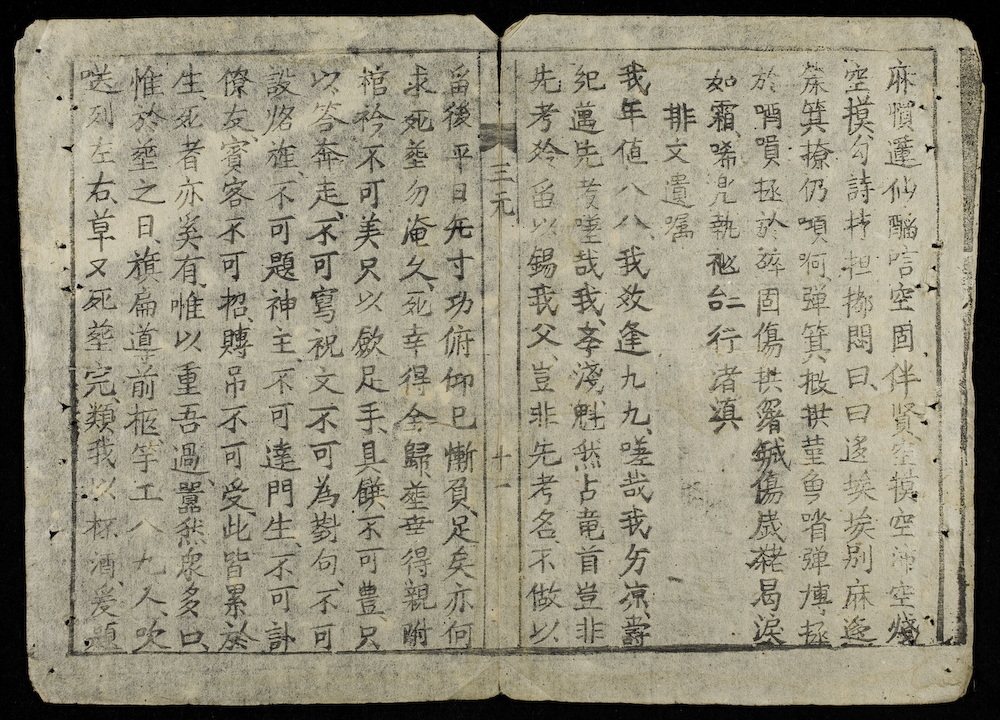 麻慣仙唁空固伴賢空模空沛空
空模、勾詩担擲悶曰、曰迻埃埃別麻迻
床箕撩仍項呵、彈箕扱拱堇㗂彈、博拯
於嗔拯於碎固傷拱畧誠傷歲曷渡
如霜、唏兒執𥙩台行渚滇
排文遺囑
我年值八八、我数逢九九、嗟哉我方凉、爵
紀邁先考嗟哉我孝淺魁然占竜首豈非
先考矜留以錫我父、豈非先考名、不做以
三元 十一
留後平日无寸功俯仰已慚負、足矣亦何
求死𦵏勿淹久、死幸得全歸𦵏幸得親附
棺衾不可美只以歛足手、具饌不可豊只
以答奔走、不可寫祝文不可為對句、不可
設旌、不可題神主、不可達門生、不可訃
僚友、賓客不可招、賻吊不可受、此皆累於
生、死者亦奚有、惟以重吾過、囂然衆多口、
惟於𦵏之日、旗扁道前柩、竽工八九人、吹
送列左右、草又死𦵏完、類我以杯酒、爰題